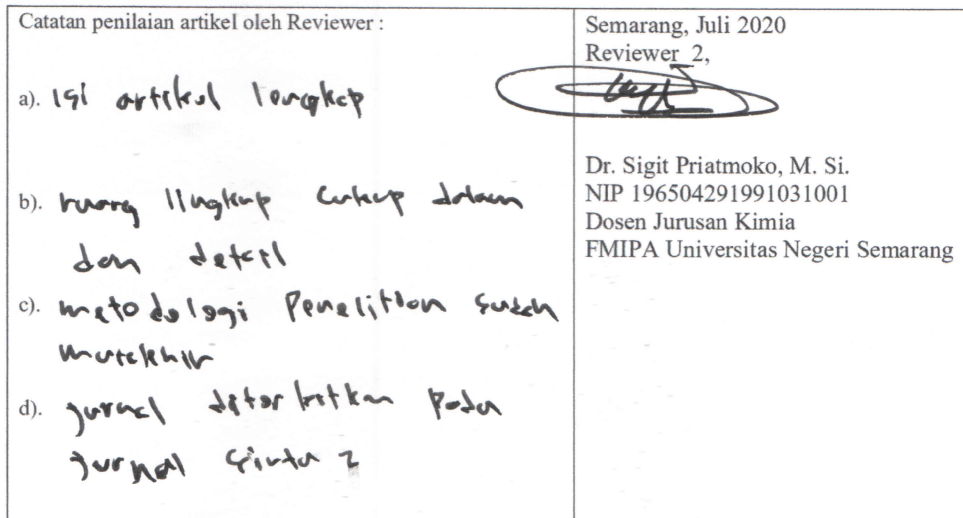 Catatan penilaian artikel oleh Reviewer :
a). isi artikel lengkap
b). ruang lingkup cukup dalam
dan detail
c). metodologi penelitian sudah
mutakhir
d). jurnal diterbitkan pada
jurnal Sinta 2
Semarang, Juli 2020
Reviewer 2,
Dr. Sigit Priatmoko, M. Si.
NIP 196504291991031001
Dosen Jurusan Kimia
FMIPA Universitas Negeri Semarang